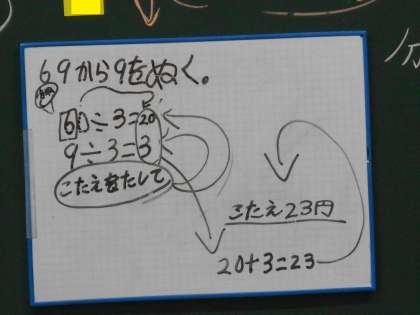 69から9をぬく。
60÷3=20
9÷3=3
こたえをたして
こたえ23円
20+3=23